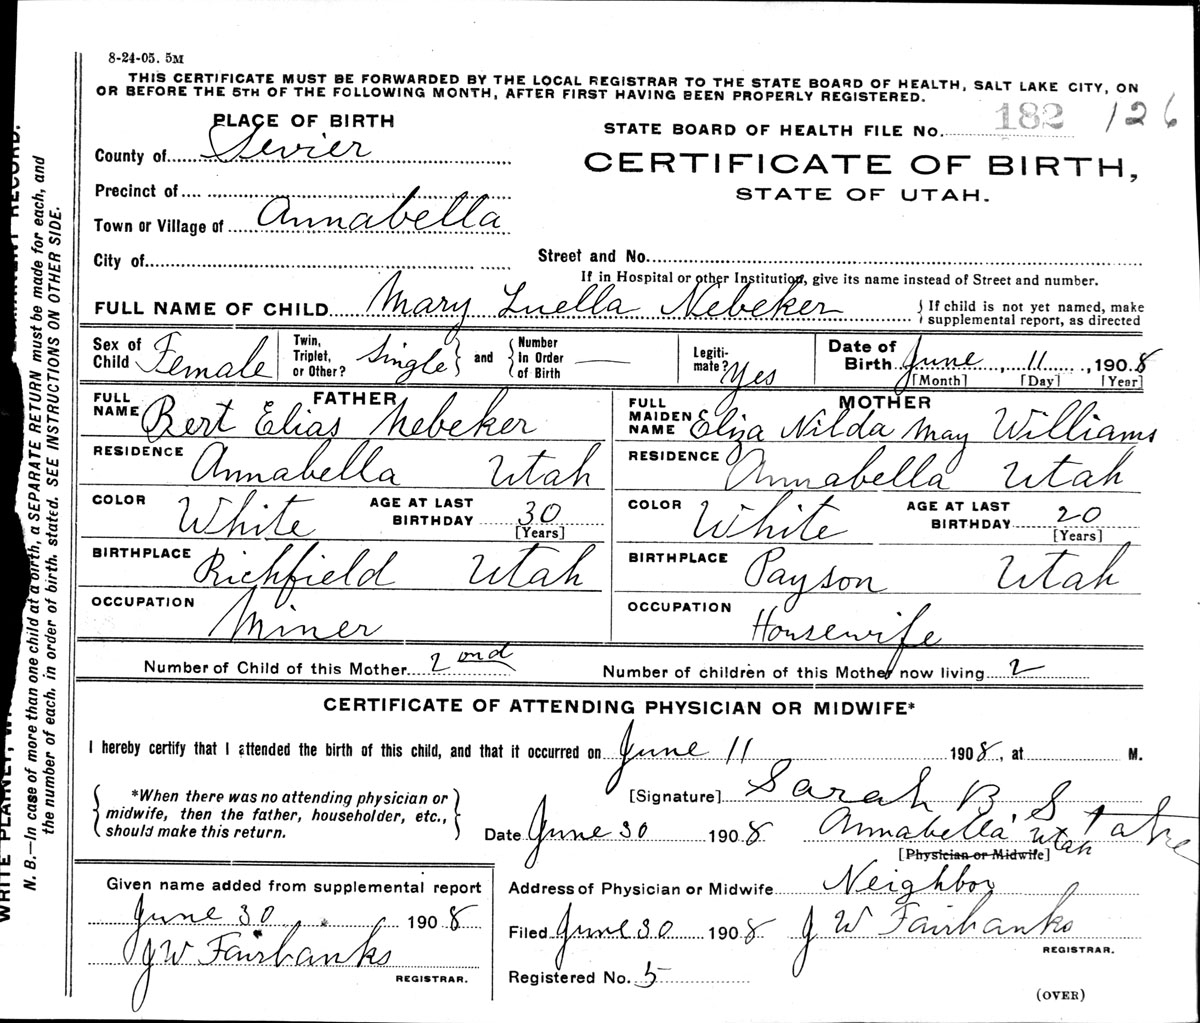 8-24-05. 5M
THIS CERTIFICATE MUST BE FORWARDED BY THE LOCAL REGISTRAR TO THE STATE BOARD OF HEALTH, SALT LAKE CITY, ON
OR BEFORE THE 5TH OF THE FOLLOWING MONTH, AFTER FIRST HAVING BEEN PROPERLY REGISTERED.
PLACE OF BIRTH
STATE BOARD OF HEALTH FILE No. 182 126
County of Sevier
CERTIFICATE OF BIRTH,
STATE OF UTAH.
Precinct of
Town or Village of Annabella
City of
Street and No.
If in Hospital or other Institution, give its name instead of Street and number.
FULL NAME OF CHILD Mary Luella Nebeker { If child is not yet named, make
supplemental report, as directed
Sex of Child Female
Twin, Triplet, or Other? Single } and { Number In Order of Birth —
Legiti-mate? Yes
Date of Birth June, 11, 1908
[Month] [Day] [Year]
FATHER
FULL NAME Bert Elias Nebeker
RESIDENCE Annabella Utah
COLOR White AGE AT LAST BIRTHDAY 30
[Years]
BIRTHPLACE Richfield Utah
OCCUPATION Miner
MOTHER
FULL MAIDEN NAME Eliza Nilda May Williams
RESIDENCE Annabella Utah
COLOR White AGE AT LAST BIRTHDAY 20
[Years]
BIRTHPLACE Payson Utah
OCCUPATION Housewife
Number of Child of this Mother 2nd
Number of children of this Mother now living 2
CERTIFICATE OF ATTENDING PHYSICIAN OR MIDWIFE*
I hereby certify that I attended the birth of this child, and that it occurred on June 11 1908, at M.
{ *When there was no attending physician or
midwife, then the father, householder, etc.,
should make this return. }
[Signature] Sarah B
Date June 30 1908 Annabella Utah
[Physician or Midwife]
Address of Physician or Midwife Neighbor
Filed June 30 1908 J W Fairbanks
REGISTRAR.
Registered No. 5
(OVER)
Given name added from supplemental report
June 30 1908
J W Fairbanks
REGISTRAR.
N. B.—In case of more than one child at a birth, a SEPARATE RETURN must be made for each, and
the number of each, in order of birth, stated. SEE INSTRUCTIONS ON OTHER SIDE.
WRITE PLAINLY,
RECORD.